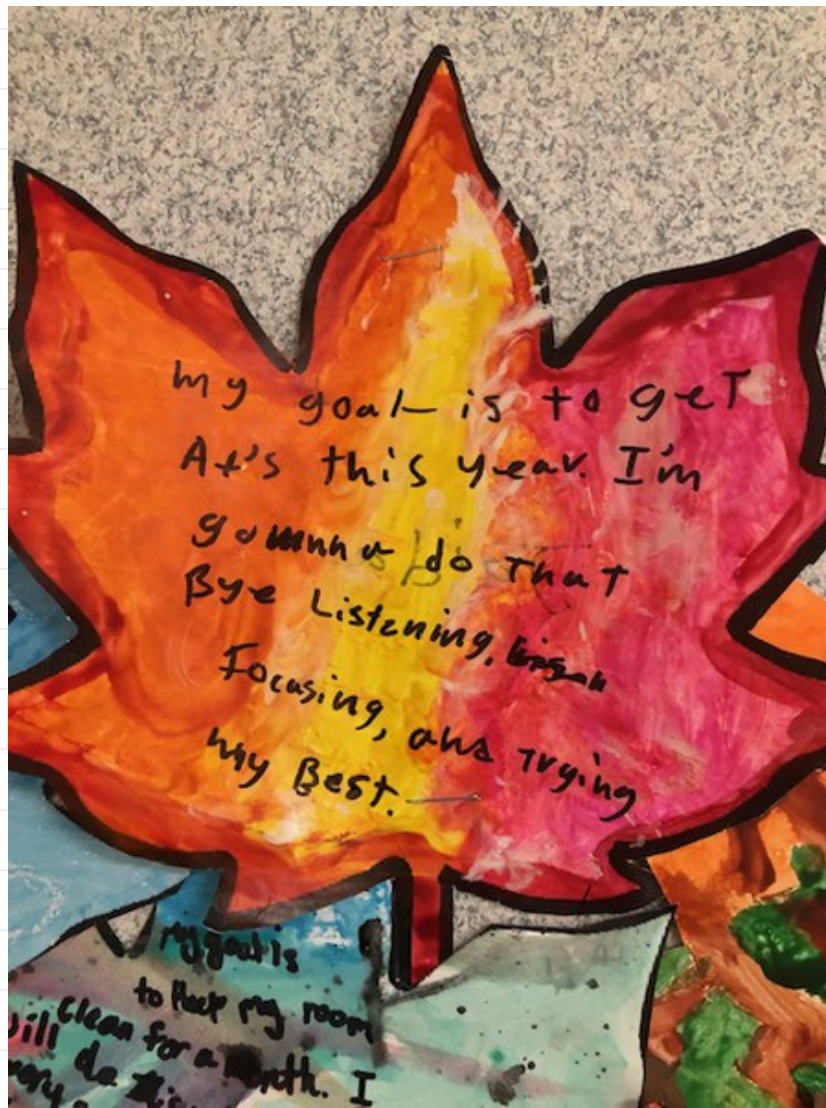 my goal is to geT
A+'s this year. I'm
gomnna do That
Bye Listening,
Focusing, ans Trying
my Best.
My goal is
to keep my room
clean for a month. I
will do this